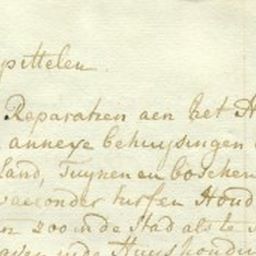 pittelen
Reparatien aen het H
annexe behuysingen
land, Tuynen en boschen
waeronder turfen Houd
en 200 in de Stad als te
in de Huushoudin